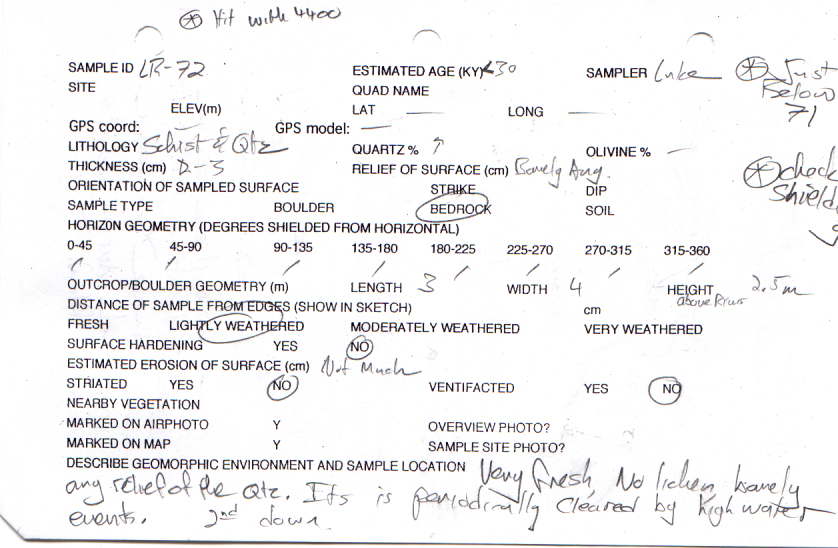 * Hit with 4400
SAMPLE ID LR-72 ESTIMATED AGE (KY) <30 SAMPLER Luke * Just
SITE QUAD NAME Below
ELEV(m) LAT — LONG — 71
GPS coord: — GPS model: —
LITHOLOGY Schist & Qtz QUARTZ % ↑ OLIVINE % —
THICKNESS (cm) 2-3 RELIEF OF SURFACE (cm) Barely Any. * check
ORIENTATION OF SAMPLED SURFACE STRIKE DIP Shield
SAMPLE TYPE BOULDER BEDROCK SOIL
HORIZON GEOMETRY (DEGREES SHIELDED FROM HORIZONTAL)
0-45 45-90 90-135 135-180 180-225 225-270 270-315 315-360
OUTCROP/BOULDER GEOMETRY (m) LENGTH 3 WIDTH 4 HEIGHT 2.5m
above
DISTANCE OF SAMPLE FROM EDGES (SHOW IN SKETCH) cm
FRESH LIGHTLY WEATHERED MODERATELY WEATHERED VERY WEATHERED
SURFACE HARDENING YES NO
ESTIMATED EROSION OF SURFACE (cm) Not Much
STRIATED YES NO VENTIFACTED YES NO
NEARBY VEGETATION
MARKED ON AIRPHOTO Y OVERVIEW PHOTO?
MARKED ON MAP Y SAMPLE SITE PHOTO?
DESCRIBE GEOMORPHIC ENVIRONMENT AND SAMPLE LOCATION Very fresh No lichen barely
any relief of the Qtz. Its is periodically cleared by high water
events. 2nd down